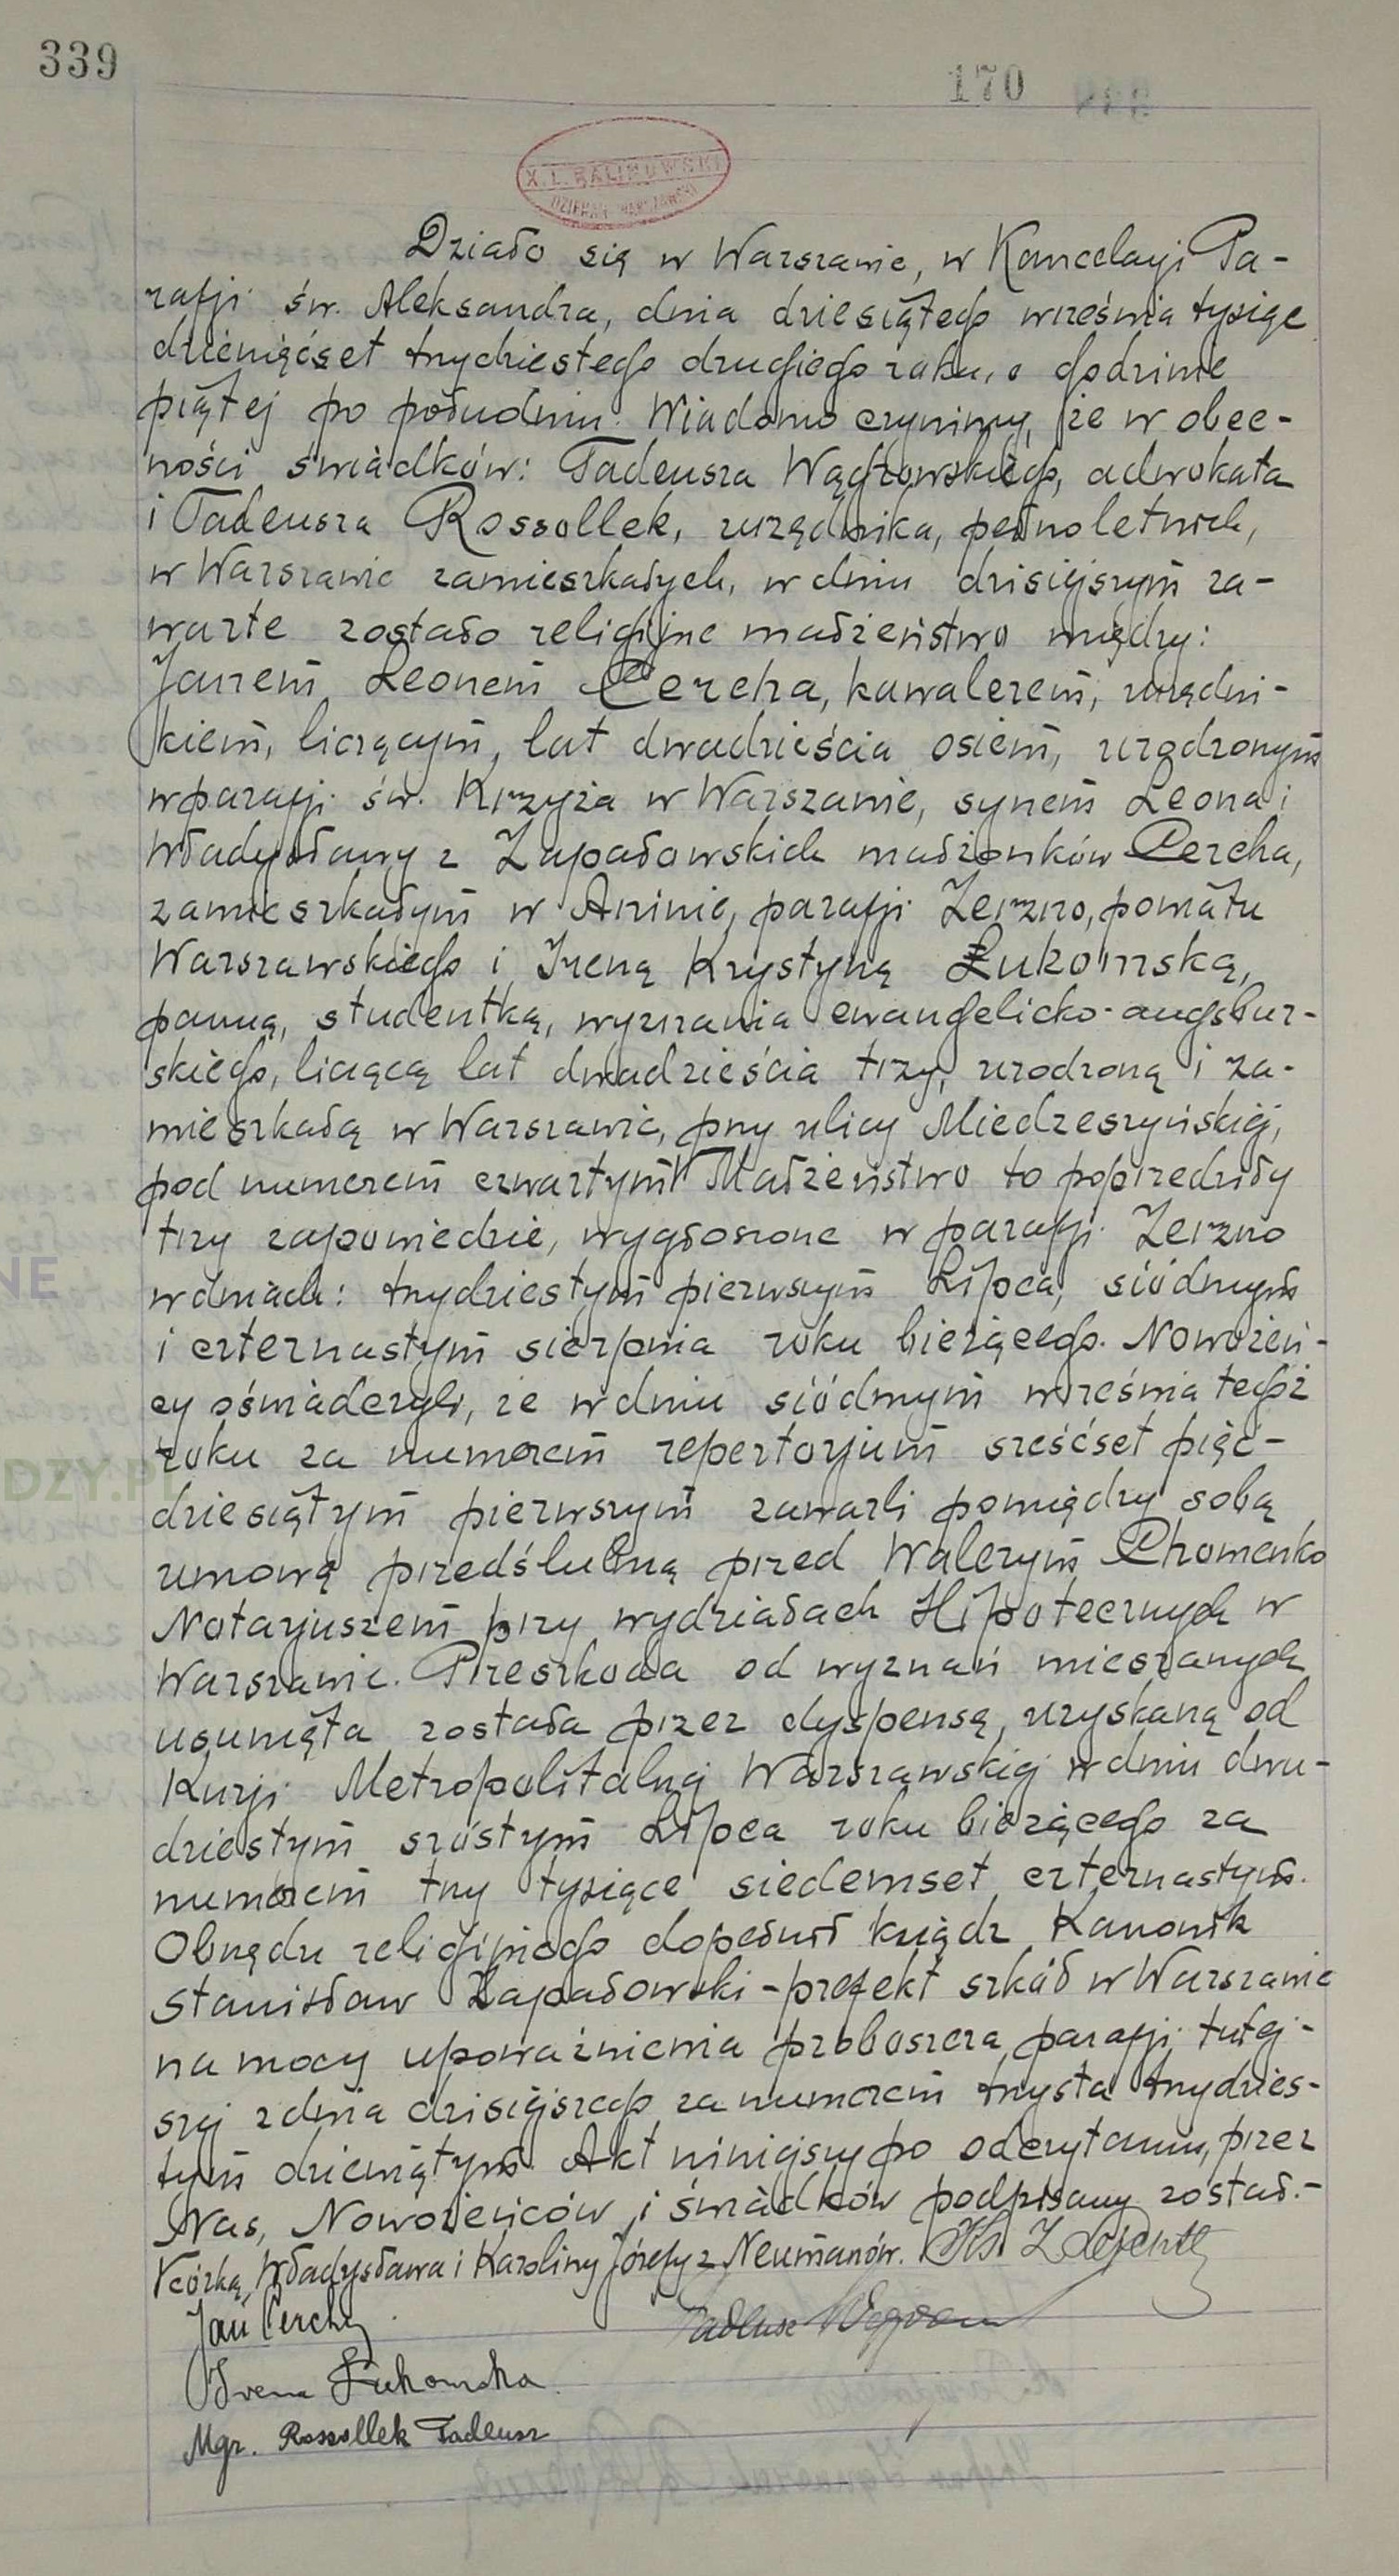 339
170
X. L. KALINOWSKI
DZIEKAN WARSZAWSKI
Działo się w Warszawie, w Kancelarji Pa-
rafji św. Aleksandra, dnia dziesiątego września tysiąc
dziewięćset trzydziestego drugiego roku, o godzinie
piątej po południu. Wiadomo czynimy, że w obec-
ności świadków: Tadeusza Wągrowskiego, adwokata
i Tadeusza Rossollek, urzędnika, pełnoletnich,
w Warszawie zamieszkałych, w dniu dzisiejszym za-
warte zostało religijne małżeństwo między:
Janem Leonem Cercha, kawalerem, urzędni-
kiem, liczącym, lat dwadzieścia osiem, urodzonym
w parafji św. Krzyża w Warszawie, synem Leona i
Władysławy z Zapałowskich małżonków Cercha,
zamieszkałym w Aninie, parafji Zerzno, powiatu
Warszawskiego i Ireną Krystyną Łukomską,
panną, studentką, wyznania ewangelicko-augsbur-
skiego, liczącą lat dwadzieścia trzy, urodzoną i za-
mieszkałą w Warszawie, przy ulicy Miedzeszyńskiej,
pod numerem czwartym V Małżeństwo to poprzedziły
trzy zapowiedzie, wygłoszone w parafji Zerzno
w dniach: trzydziestym pierwszym Lipca, siódmym
i czternastym sierpnia roku bieżącego. Nowożeń-
cy oświadczyli, że w dniu siódmym września tegoż
roku za numerem repertorjum sześćset pięć-
dziesiątym pierwszym zawarli pomiędzy sobą
umowę przedślubną przed Walerym Chomenko
Notarjuszem przy wydziałach Hipotecznych w
Warszawie. Przeszkoda od wyznań mieszanych
usunięta została przez dyspensę, uzyskaną od
Kurji Metropolitalnej Warszawskiej w dniu dwu-
dziestym szóstym Lipca roku bieżącego za
numerem trzy tysiące siedemset czternastym.
Obrzędu religijnego dopełnił ksiądz Kanonik
Stanisław Zapałowski - prefekt szkół w Warszawie
na mocy upoważnienia proboszcza parafji tutej-
szej z dnia dzisiejszego za numerem trzysta trzydzies-
tym dziewiątym. Akt niniejszy po odczytaniu, przez
Nas, Nowożeńców i świadków podpisany został.-
V córką Władysława i Karoliny Józefy z Neumanów. Ks.
Jan Cercha
Tadeusz
Irena Łukomska
Mgr. Rossollek Tadeusz